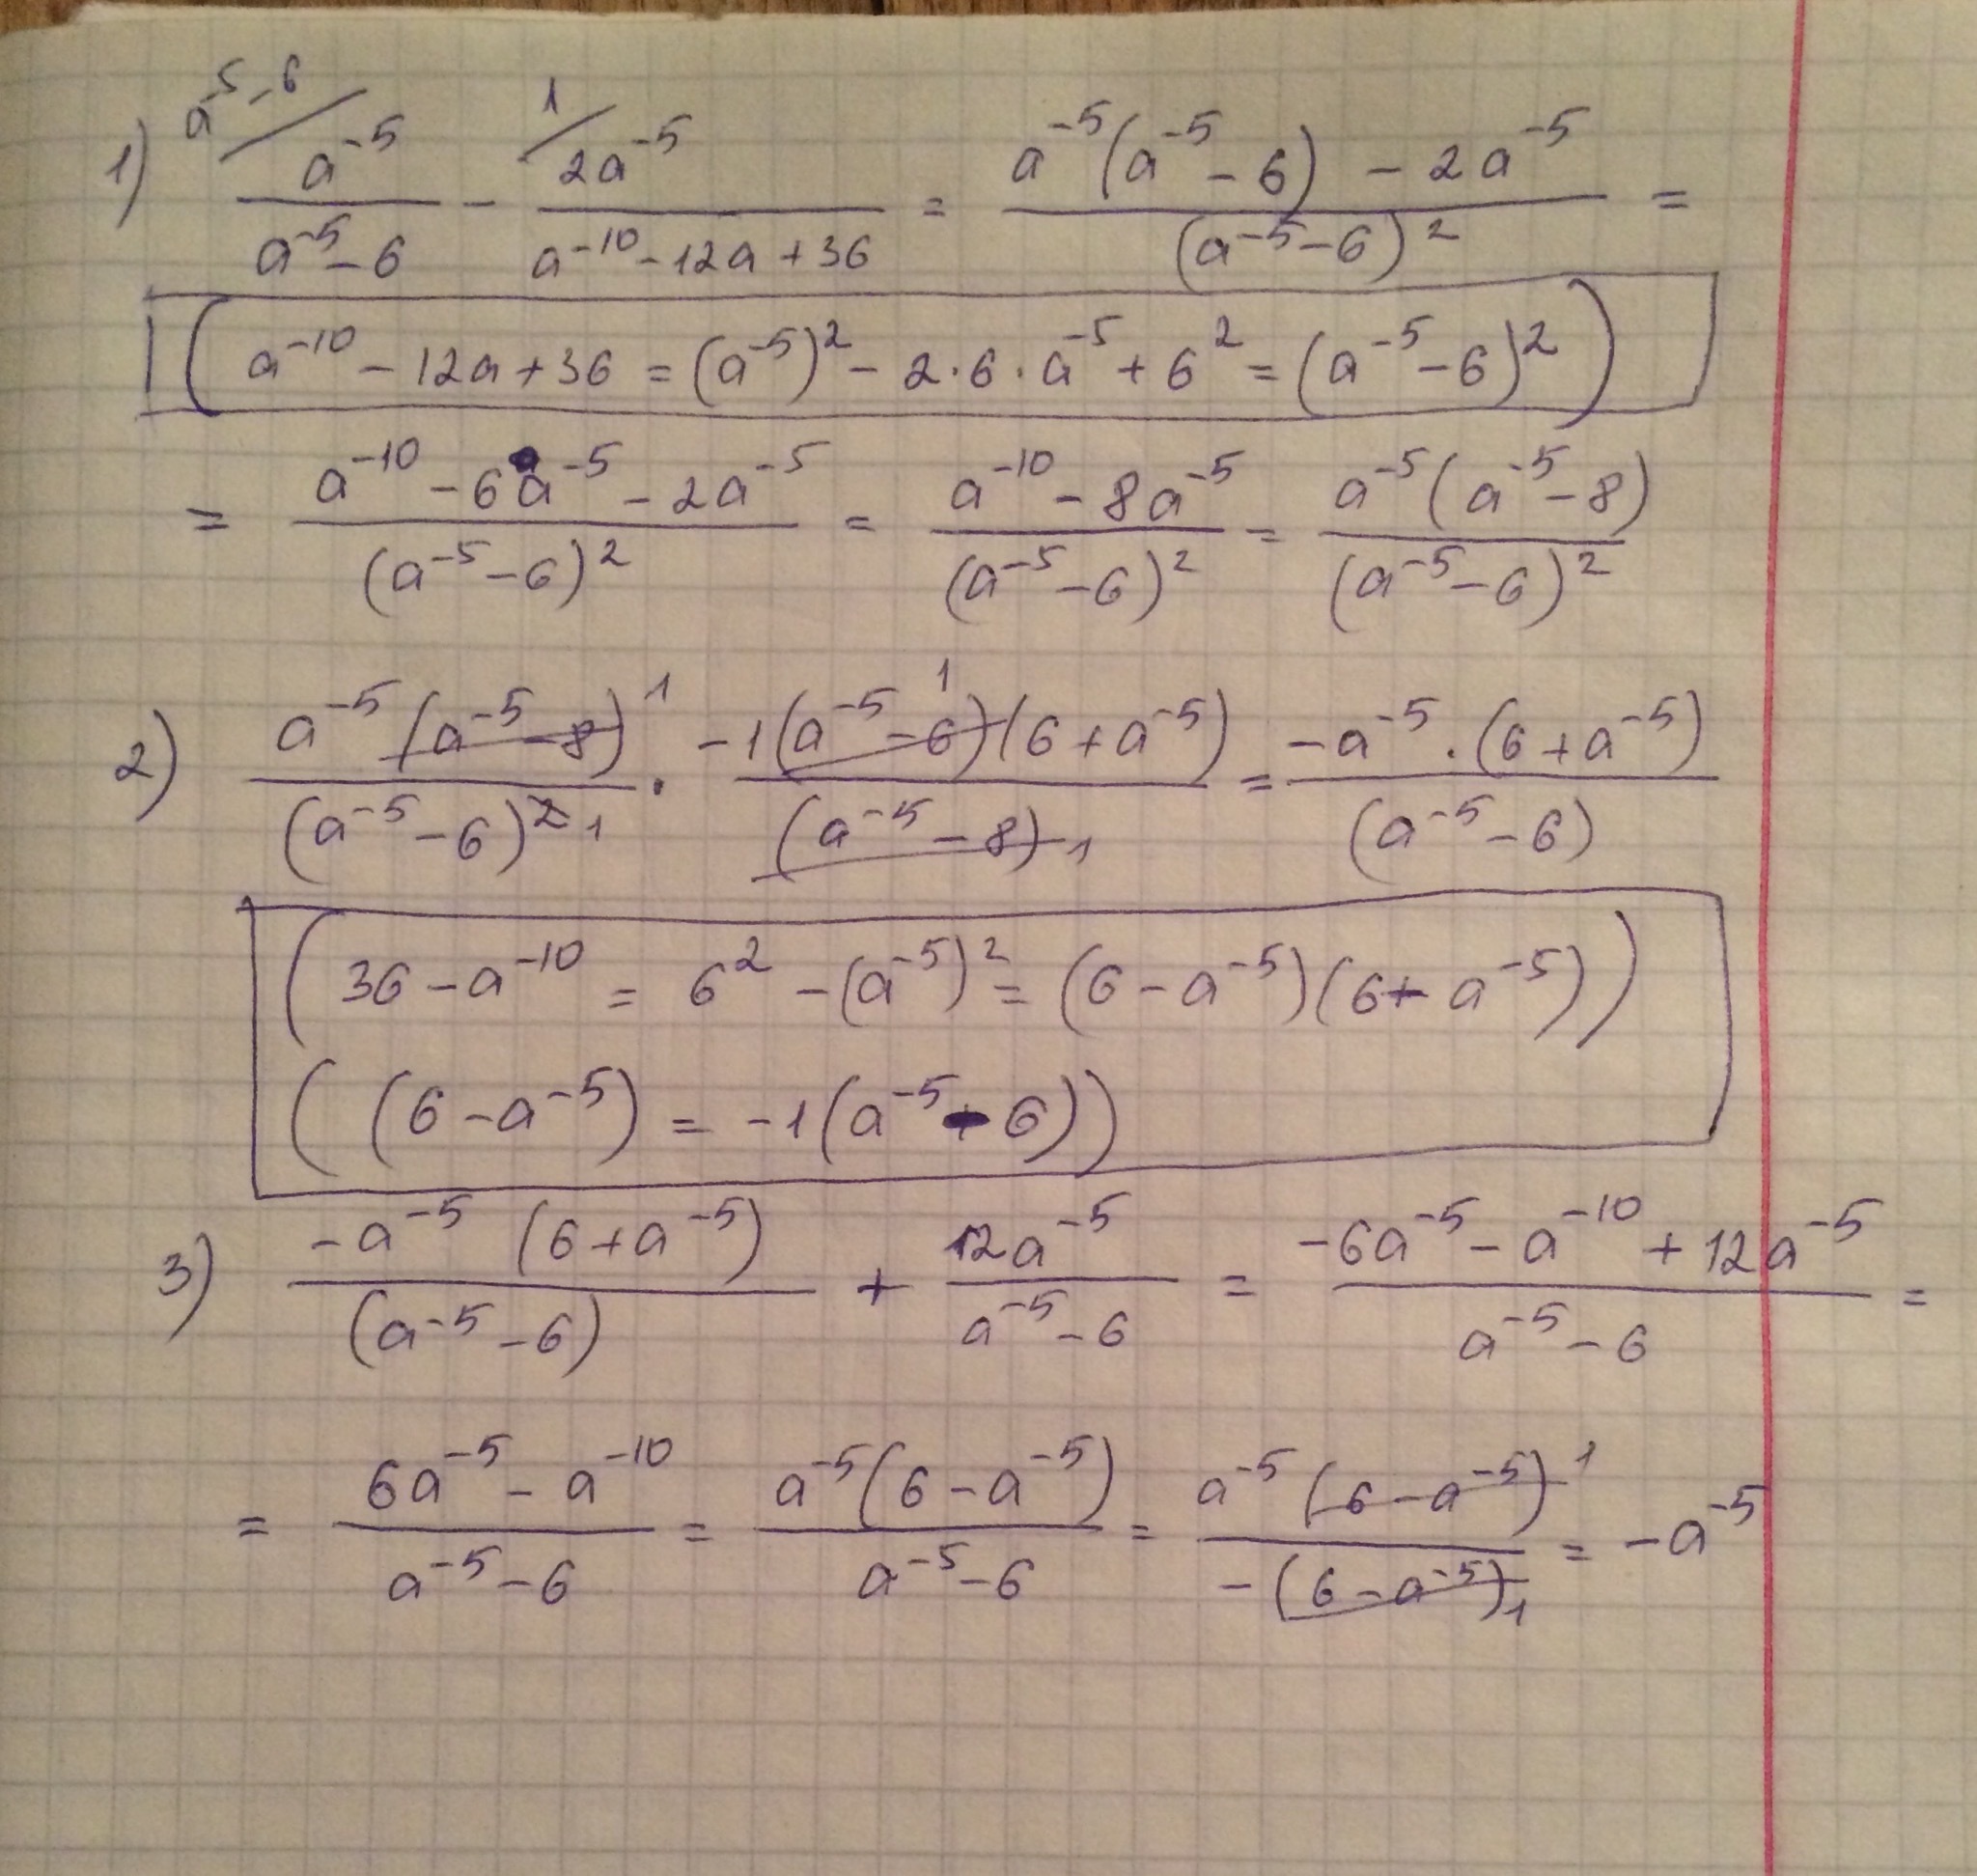 1) a^-5-6/ a^-5/(a^-5-6) - 1/ 2a^-5/(a^-10-12a+36) = (a^-5(a^-5-6)-2a^-5)/(a^-5-6)^2 =
(a^-10-12a+36=(a^-5)^2-2·6·a^-5+6^2=(a^-5-6)^2)
= (a^-10-6a^-5-2a^-5)/(a^-5-6)^2 = (a^-10-8a^-5)/(a^-5-6)^2 = (a^-5(a^-5-8))/(a^-5-6)^2
2) (a^-5(a^-5-8)^1)/((a^-5-6)^2 1) · (-1(a^-5-6)^1(6+a^-5))/((a^-5-8) 1) = (-a^-5·(6+a^-5))/(a^-5-6)
(36-a^-10=6^2-(a^-5)^2=(6-a^-5)(6+a^-5))
((6-a^-5)=-1(a^-5-6))
3) (-a^-5(6+a^-5))/(a^-5-6) + 12a^-5/(a^-5-6) = (-6a^-5-a^-10+12a^-5)/(a^-5-6) =
= (6a^-5-a^-10)/(a^-5-6) = (a^-5(6-a^-5))/(a^-5-6) = (a^-5(6-a^-5)^1)/(-(6-a^-5) 1) = -a^-5